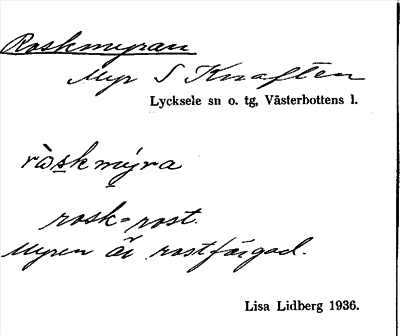 Roskmyran
Myr S Knaften
Lycksele sn o. tg, Västerbottens l.
ròskmýra
rosk = rost.
Myren är rostfärgad.
Lisa Lidberg 1936.